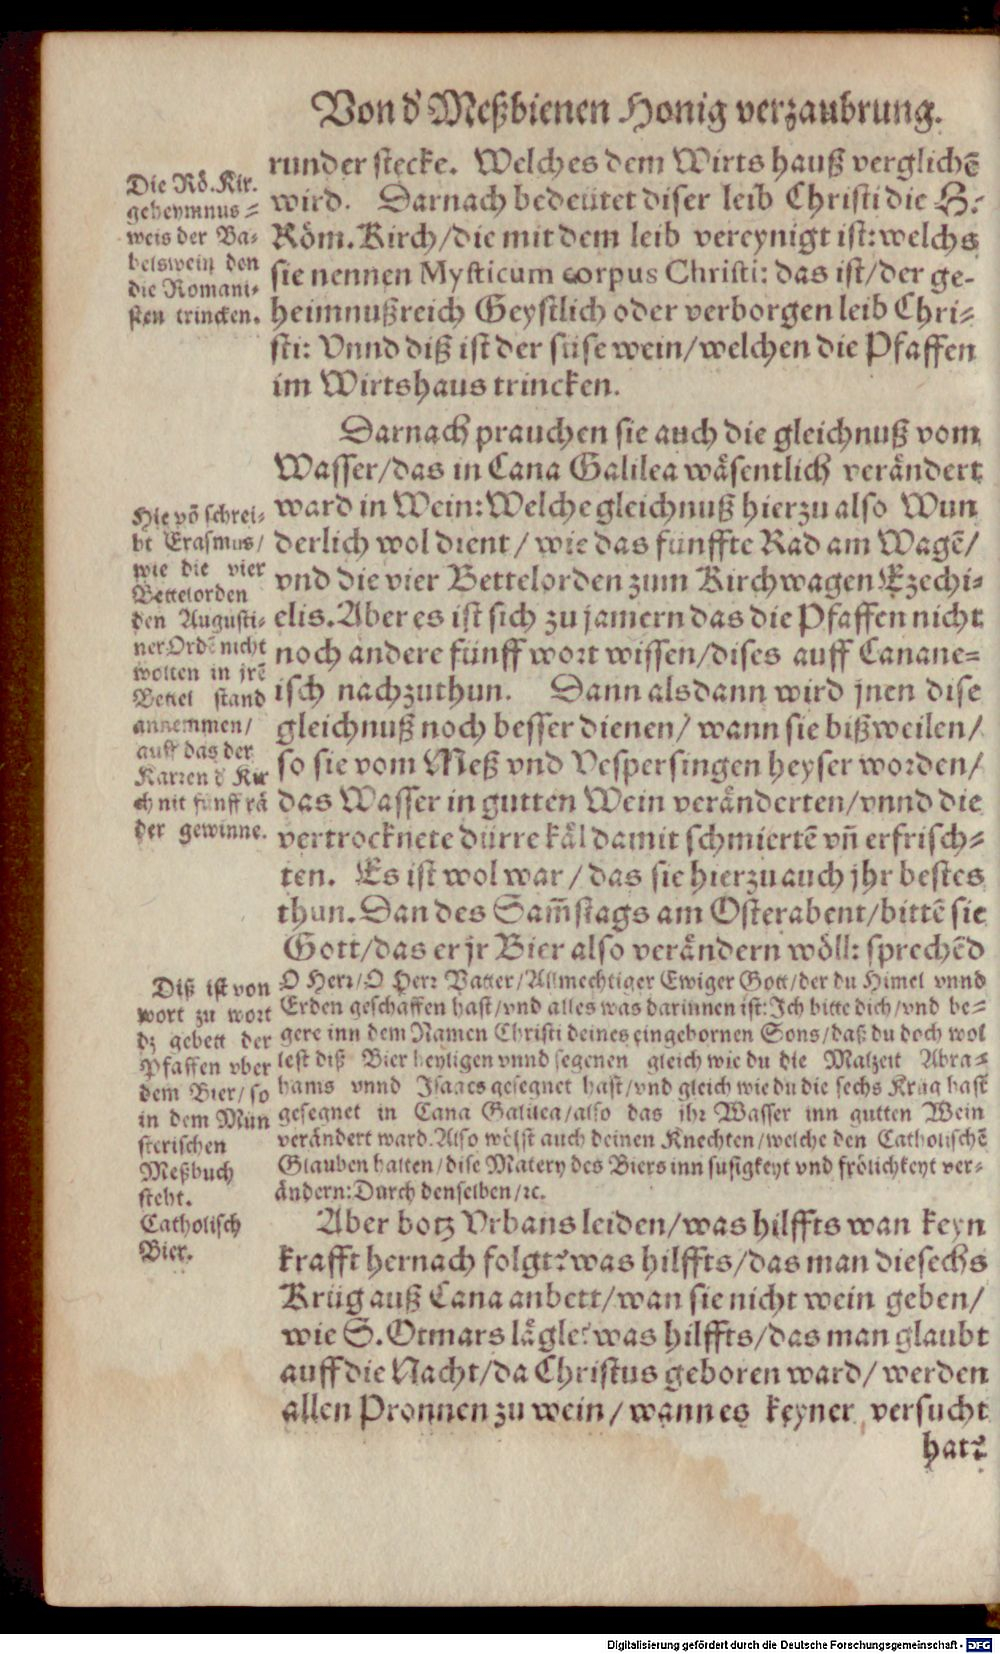 Von d' Meßbienen Honig verzaubrung.
runder stecke. Welches dem Wirts hauß verglichē
wird. Darnach bedeutet diser leib Christi die H.
Röm. Kirch/die mit dem leib vereynigt ist: welchs
sie nennen Mysticum corpus Christi: das ist/der ge-
heimnußreich Geystlich oder verborgen leib Chri-
sti: Vnnd diß ist der süse wein/welchen die Pfaffen
im Wirtshaus trincken.
Die Rö. Kir.
geheymnus-
weis der Ba-
belswein den
die Romani-
sten trincken.
Darnach prauchen sie auch die gleichnuß vom
Wasser/das in Cana Galilea wäsentlich verändert
ward in Wein: Welche gleichnuß hierzu also Wun
derlich wol dient / wie das fünffte Rad am Wagē/
vnd die vier Bettelorden zum Kirchwagen Ezechi-
elis. Aber es ist sich zu jamern das die Pfaffen nicht
noch andere fünff wort wissen/dises auff Canane-
isch nachzuthun. Dann alsdann wird jnen dise
gleichnuß noch besser dienen/ wann sie bißweilen/
so sie vom Meß vnd Vespersingen heyser worden/
das Wasser in gutten Wein veränderten/vnnd die
vertrocknete dürre käl damit schmiertē vn̄ erfrisch-
ten. Es ist wol war / das sie hierzu auch jhr bestes
thun. Dan des Sam̄stags am Osterabent/bittē sie
Gott/das er jr Bier also verändern wöll: sprechēd
Hie vō schrei-
bt Erasmus/
wie die vier
Bettelorden
den Augusti-
ner Ordē nicht
wolten in jrē
Bettel stand
annemmen/
auff das der
Karren d' Kir
ch nit fünff rä
der gewinne.
O Herr/O Herr Vatter/Allmechtiger Ewiger Gott/der du Himel vnnd
Erden geschaffen hast/vnd alles was darinnen ist: Ich bitte dich/vnd be-
gere inn dem Namen Christi deines eingebornen Sons/daß du doch wol
lest diß Bier heyligen vnnd segenen gleich wie du die Malzeit Abra-
hams vnnd Isaacs gesegnet hast/vnd gleich wie du die sechs Krüg hast
gesegnet in Cana Galilea/also das jhr Wasser inn gutten Wein
verändert ward. Also wölst auch deinen Knechten/welche den Catholischē
Glauben halten/dise Matery des Biers inn susigkeyt vnd frölichkeyt ver-
ändern: Durch denselben/ꝛc.
Diß ist von
wort zu wort
dz gebett der
Pfaffen vber
dem Bier/so
in dem Mün
sterischen
Meßbuch
steht.
Catholisch
Bier.
Aber botz Vrbans leiden/was hilffts wan keyn
krafft hernach folgt? was hilffts/das man die sechs
Krüg auß Cana anbett/wan sie nicht wein geben/
wie S. Otmars lägle? was hilffts/das man glaubt
auff die Nacht/da Christus geboren ward/ werden
allen Pronnen zu wein/ wann es keyner versucht
hat?
Digitalisierung gefördert durch die Deutsche Forschungsgemeinschaft - DFG